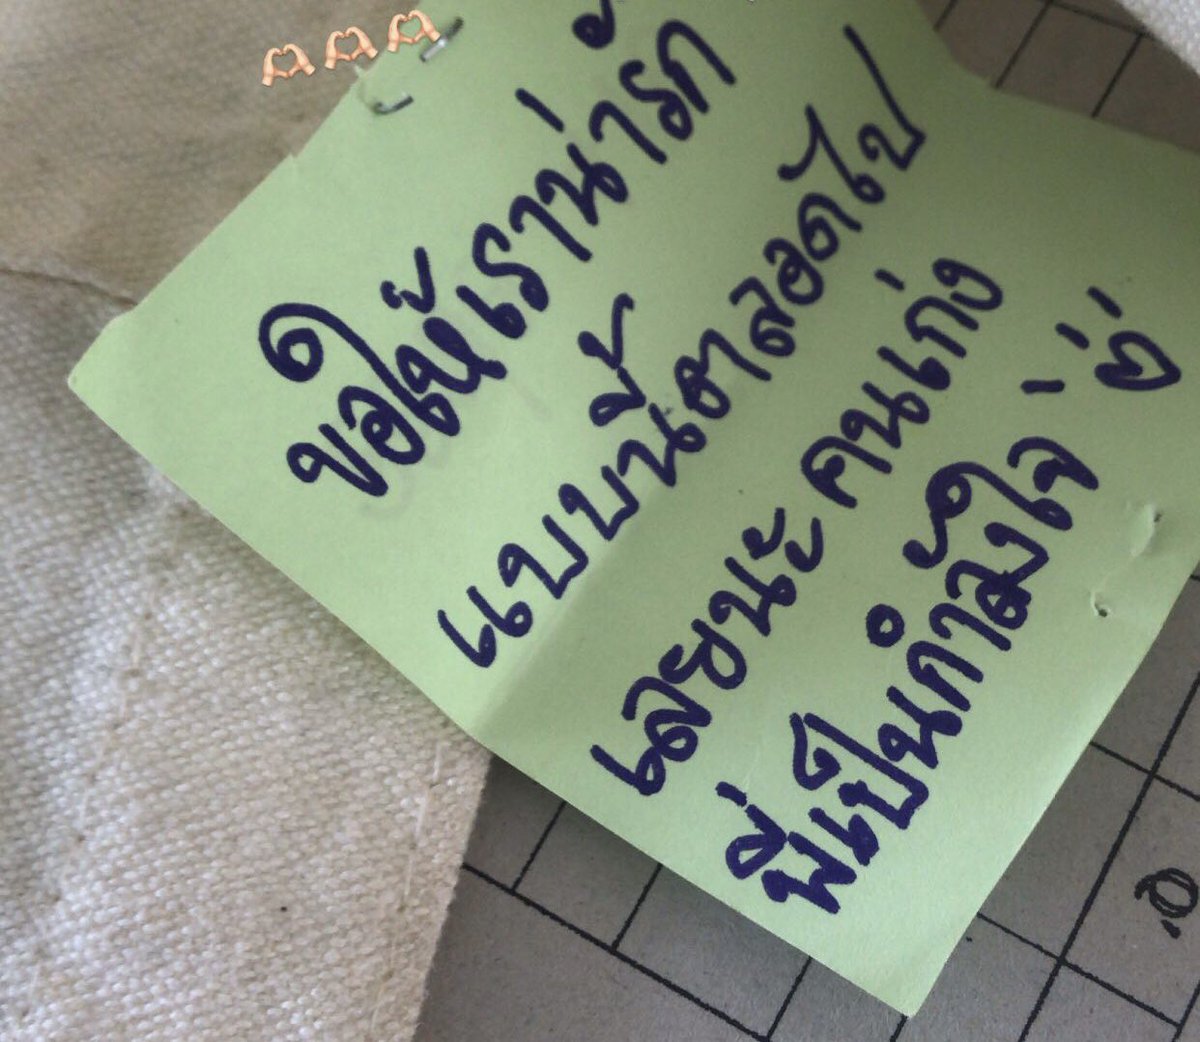 ขอให้เราน่ารัก
แบบนี้ตลอดไป
เลยนะ คนเก่ง
พี่เป็นกำลังใจ